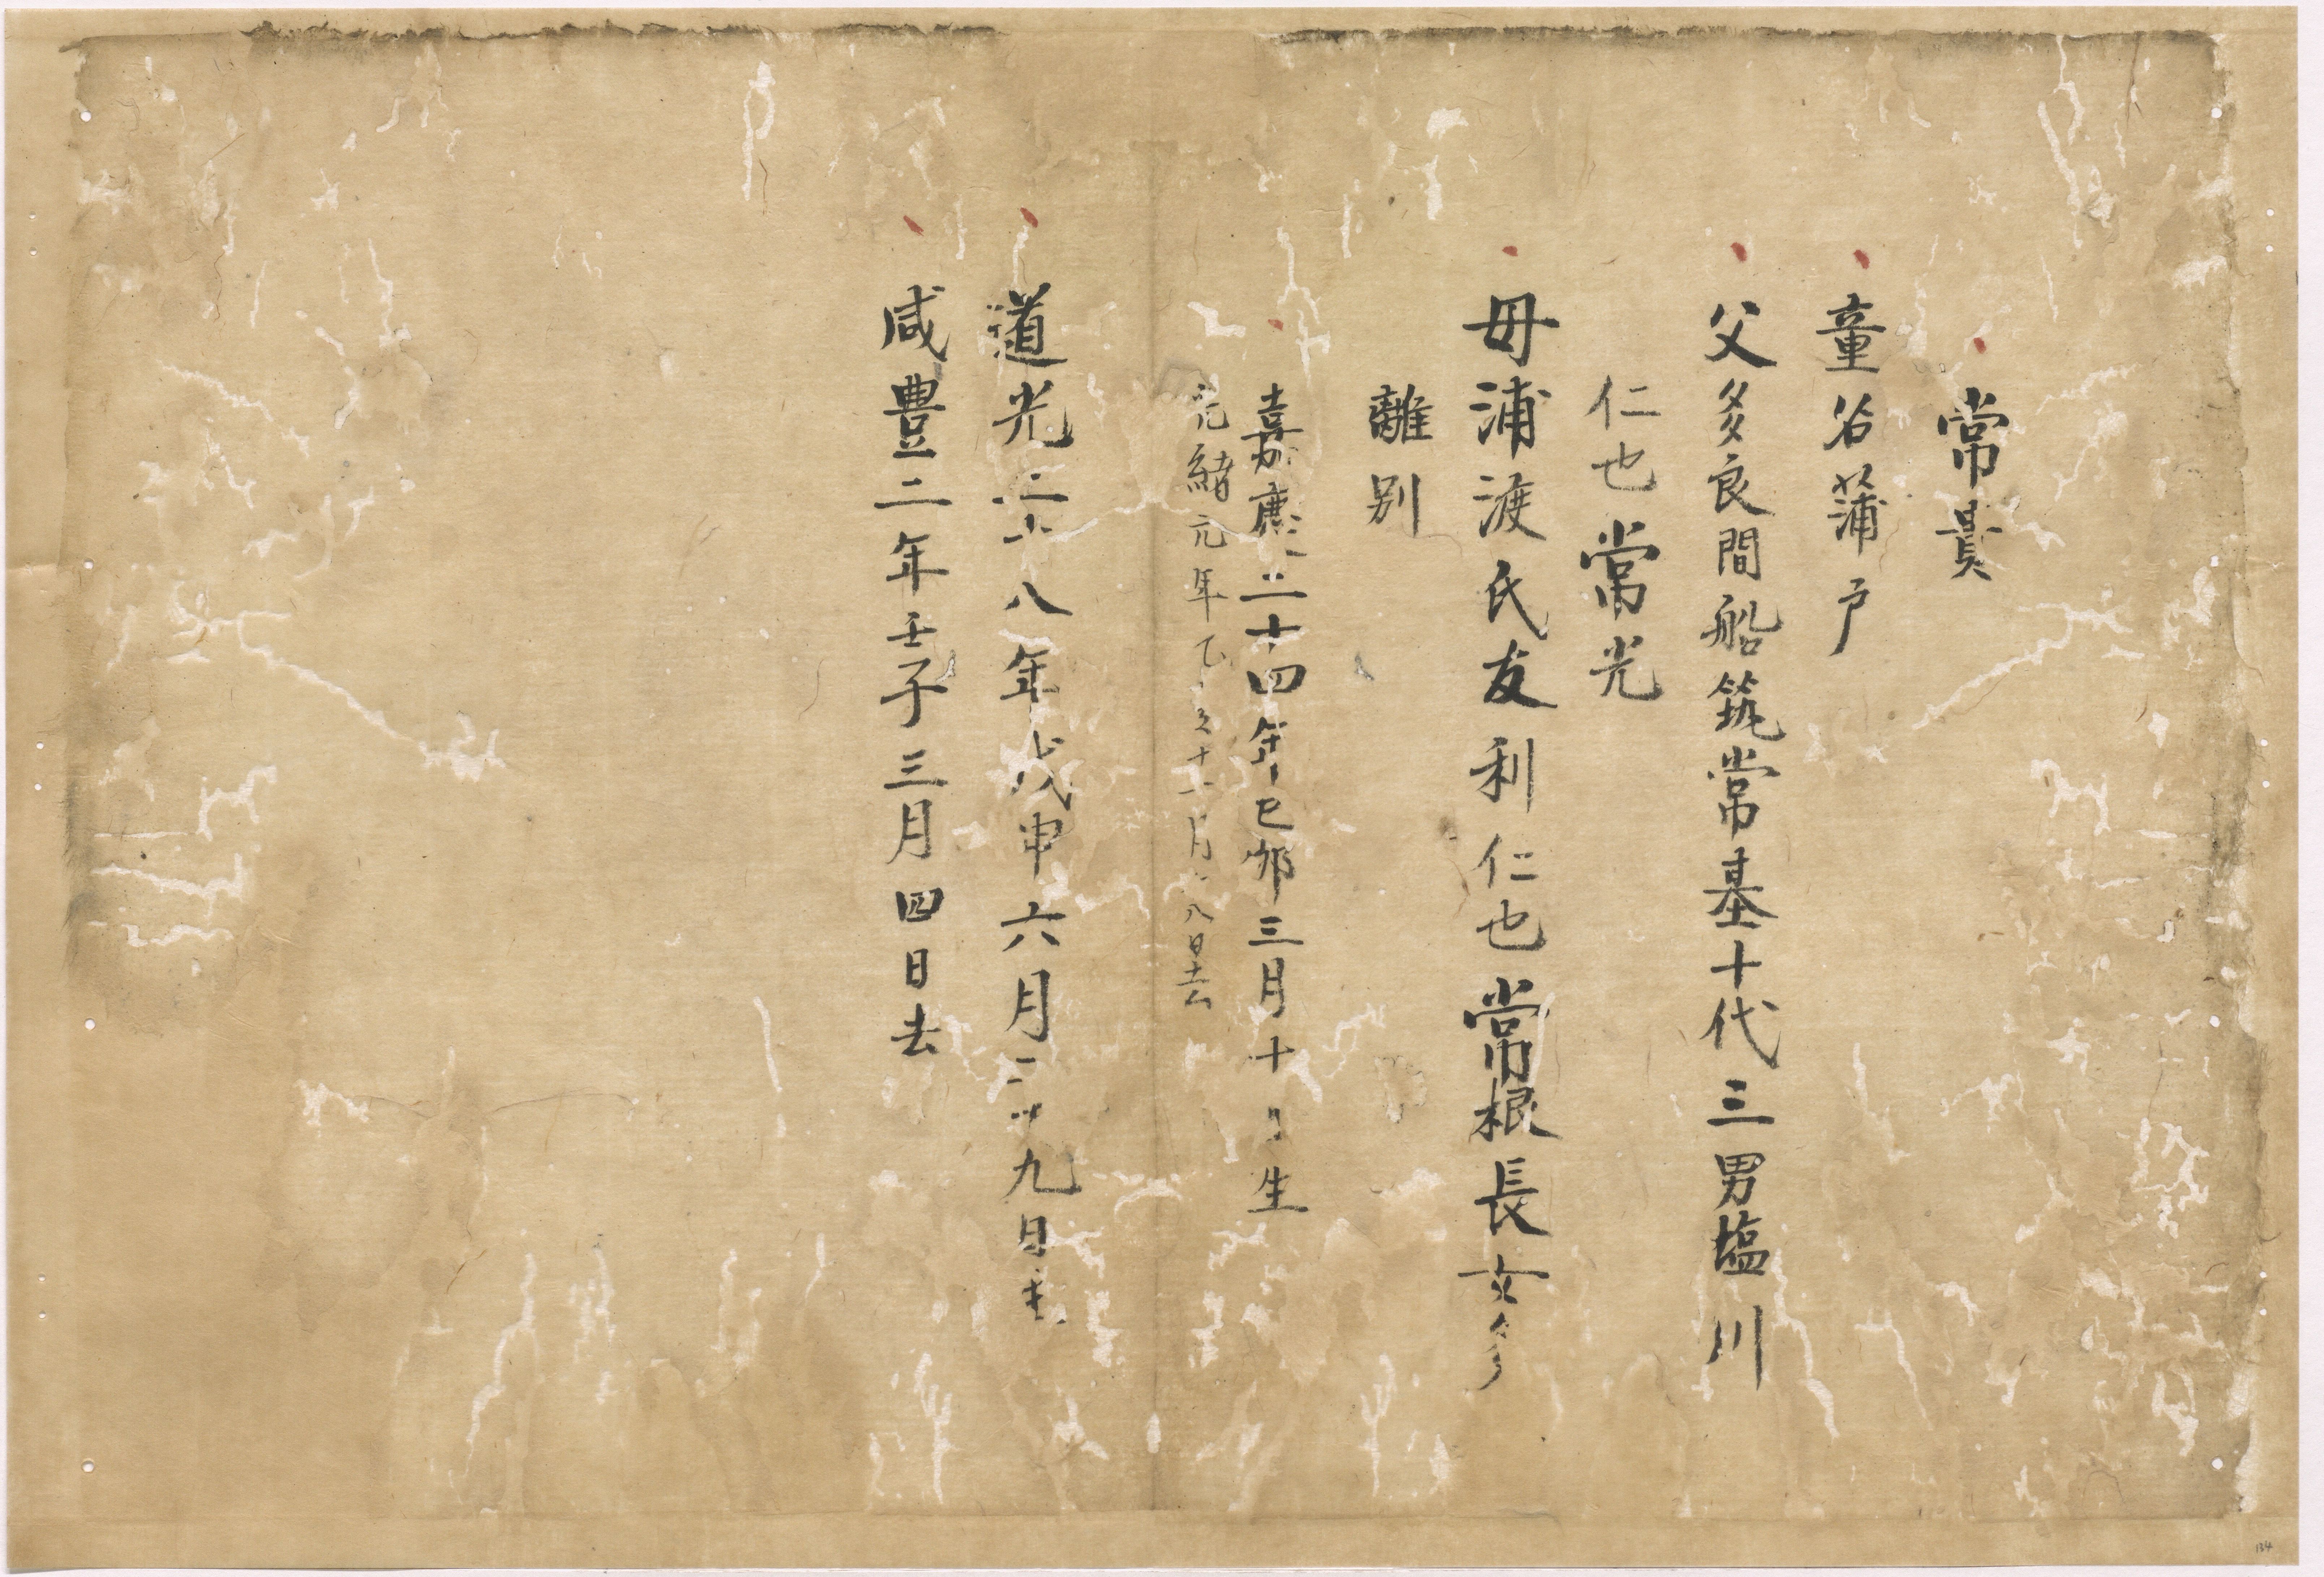 常貴
童名蒲戸
父多良間船筑常基十代三男塩川
仁也常光
母浦渡氏友利仁也常根長女多
離別
嘉慶二十四年己卯三月十日生
光緒元年乙亥十一月八日去
道光二十八年戊申六月二十九日
咸豊二年壬子三月四日去
134